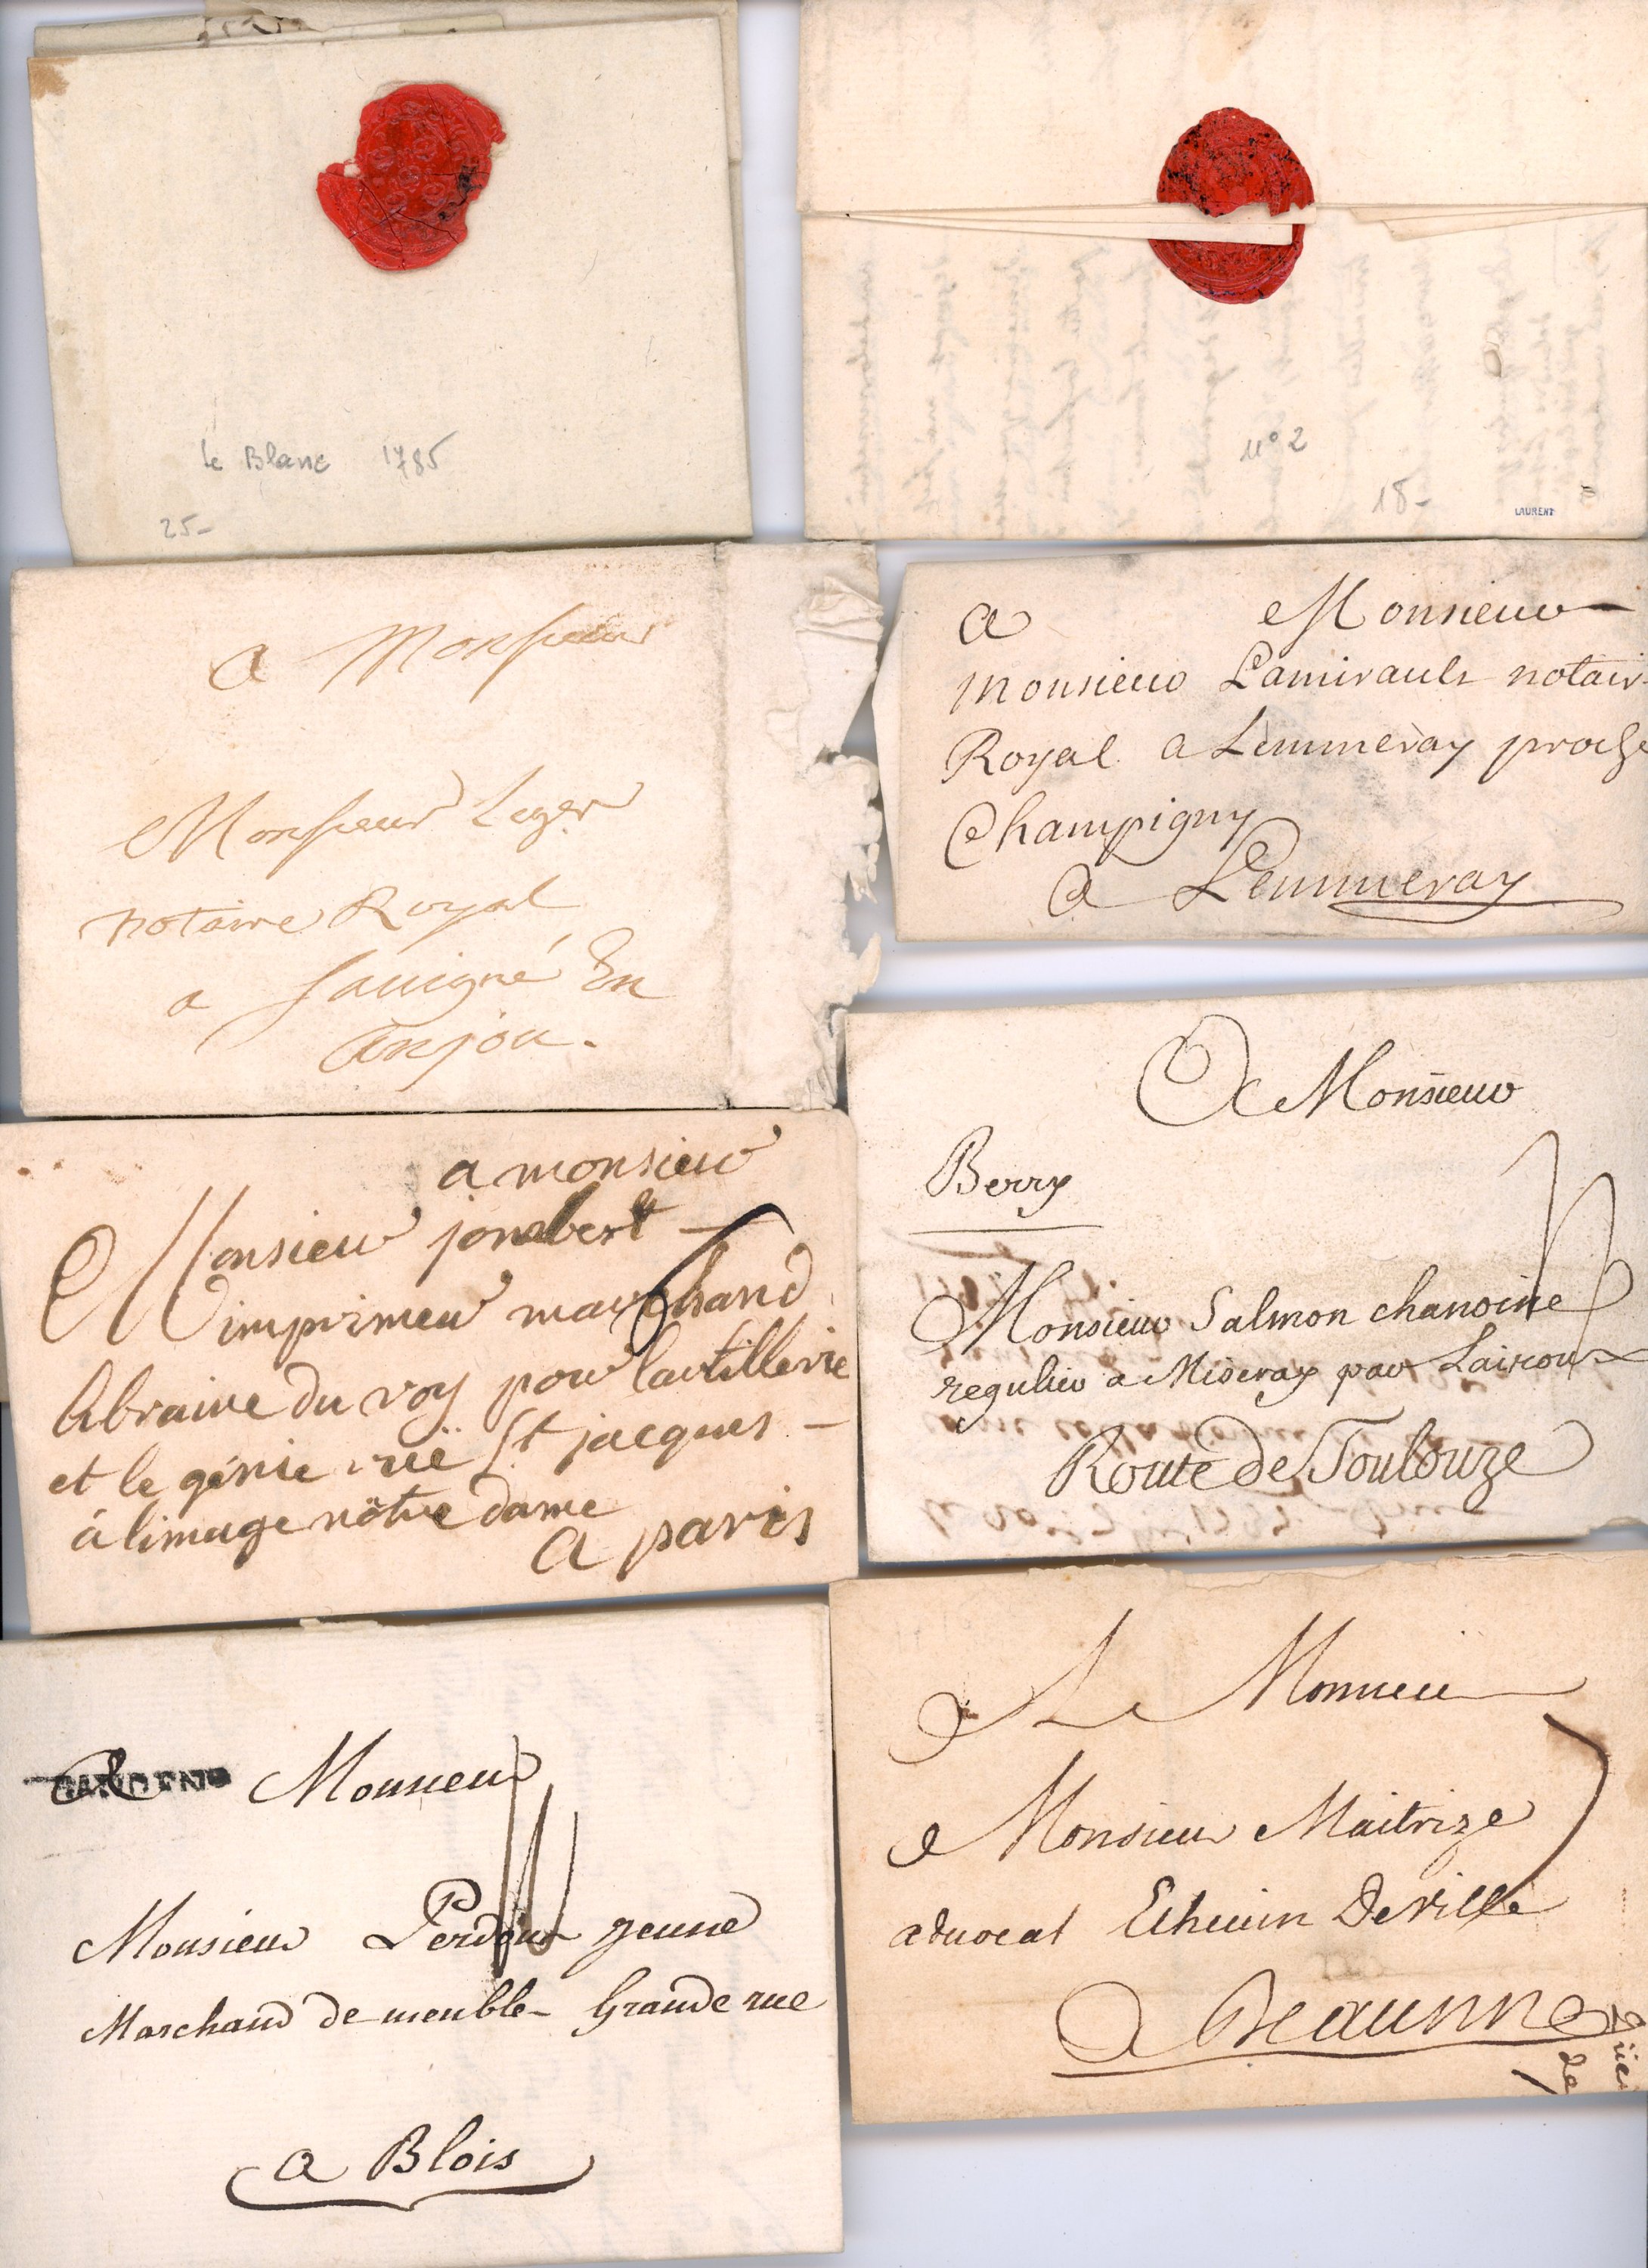 le Blanc 1785
25-
n° 2
18-
LAURENT
a Monsieur
Monsieur Leger
notaire Royal
a Sauigné En
anjou.
a Monsieur
Monsieur Lamirault notair
Royal a Lemmeray proche
Champigny
a Lemmeray
a monsieur
Monsieur jombert
imprimeur marchand
libraire du roy pour lartillerie
et le génie, ruë St jacques
à limage nôtre dame
a paris
A Monsieur
Berry
Monsieur Salmon chanoine
regulier a Miseray par
Route de Toulouze
A Monsieur
Monsieur Perdoux jeune
Marchand de meuble Grande rue
a Blois
A Monsieur
Monsieur Maitrize
aduocat Echeuin De Ville
A Beaunne